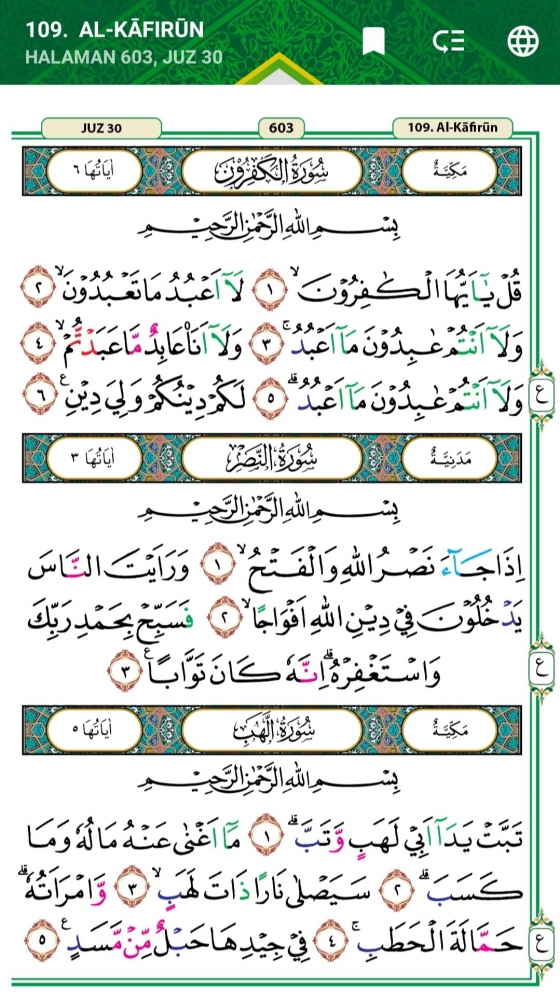 109. AL-KĀFIRŪN
HALAMAN 603, JUZ 30
JUZ 30
603
109. Al-Kāfirūn
مَكِّيَّةٌ
سُوْرَةُ الْكٰفِرُوْنَ
اٰيَاتُهَا ٦
بِسْمِ اللّٰهِ الرَّحْمٰنِ الرَّحِيْمِ
قُلْ يٰٓاَيُّهَا الْكٰفِرُوْنَۙ ١ لَآ اَعْبُدُ مَا تَعْبُدُوْنَۙ ٢
وَلَآ اَنْتُمْ عٰبِدُوْنَ مَآ اَعْبُدُۚ ٣ وَلَآ اَنَا۠ عَابِدٌ مَّا عَبَدْتُّمْۙ ٤
وَلَآ اَنْتُمْ عٰبِدُوْنَ مَآ اَعْبُدُۗ ٥ لَكُمْ دِيْنُكُمْ وَلِيَ دِيْنِࣖ ٦
ع
مَدَنِيَّةٌ
سُوْرَةُ النَّصْرِ
اٰيَاتُهَا ٣
بِسْمِ اللّٰهِ الرَّحْمٰنِ الرَّحِيْمِ
اِذَا جَاۤءَ نَصْرُ اللّٰهِ وَالْفَتْحُۙ ١ وَرَاَيْتَ النَّاسَ
يَدْخُلُوْنَ فِيْ دِيْنِ اللّٰهِ اَفْوَاجًاۙ ٢ فَسَبِّحْ بِحَمْدِ رَبِّكَ
وَاسْتَغْفِرْهُۗ اِنَّهٗ كَانَ تَوَّابًاࣖ ٣
ع
مَكِّيَّةٌ
سُوْرَةُ اللَّهَبِ
اٰيَاتُهَا ٥
بِسْمِ اللّٰهِ الرَّحْمٰنِ الرَّحِيْمِ
تَبَّتْ يَدَآ اَبِيْ لَهَبٍ وَّتَبَّۗ ١ مَآ اَغْنٰى عَنْهُ مَالُهٗ وَمَا
كَسَبَۗ ٢ سَيَصْلٰى نَارًا ذَاتَ لَهَبٍۙ ٣ وَّامْرَاَتُهٗۗ
حَمَّالَةَ الْحَطَبِۚ ٤ فِيْ جِيْدِهَا حَبْلٌ مِّنْ مَّسَدٍࣖ ٥
ع